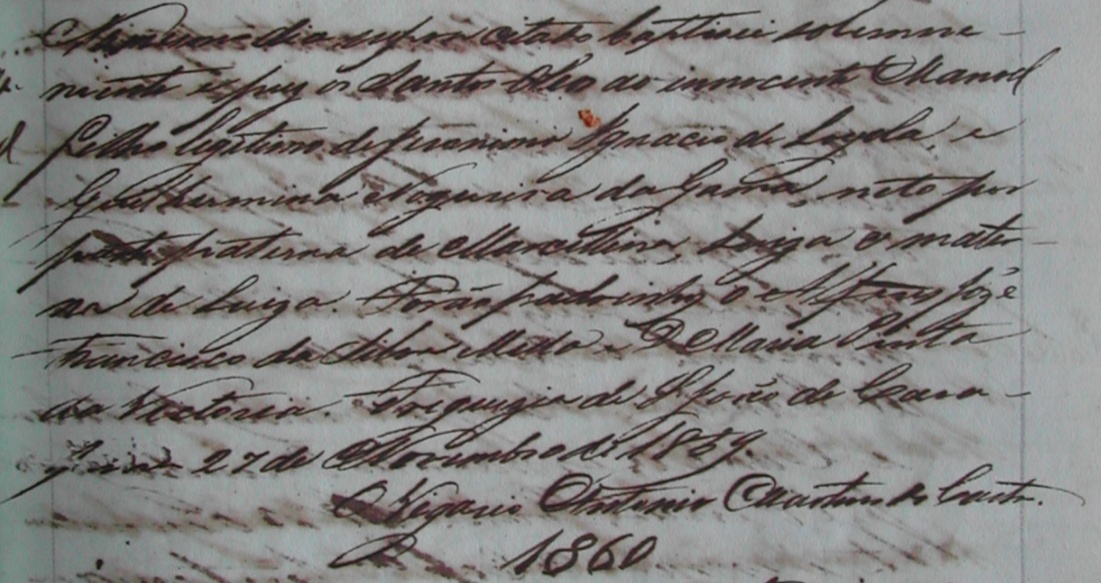 No mesmo dia supra citado baptisei solemne-
mente e puz os Santos Oleos ao innocente Manoel
filho legitimo de Jeronimo Ignacio de Loyola, e
Guilhermina Nogueira da Gama, neto por
parte paterna de Marcellina, Luiza e mater-
na de Luiza. Forão padrinhos o Alferes José
Francisco da Silva e D. Maria Pinta
da Victoria. Freguezia de S. João de Cara-
27 de Novembro de 1859.
O Vigario Antonio Martins de Castro.
1860